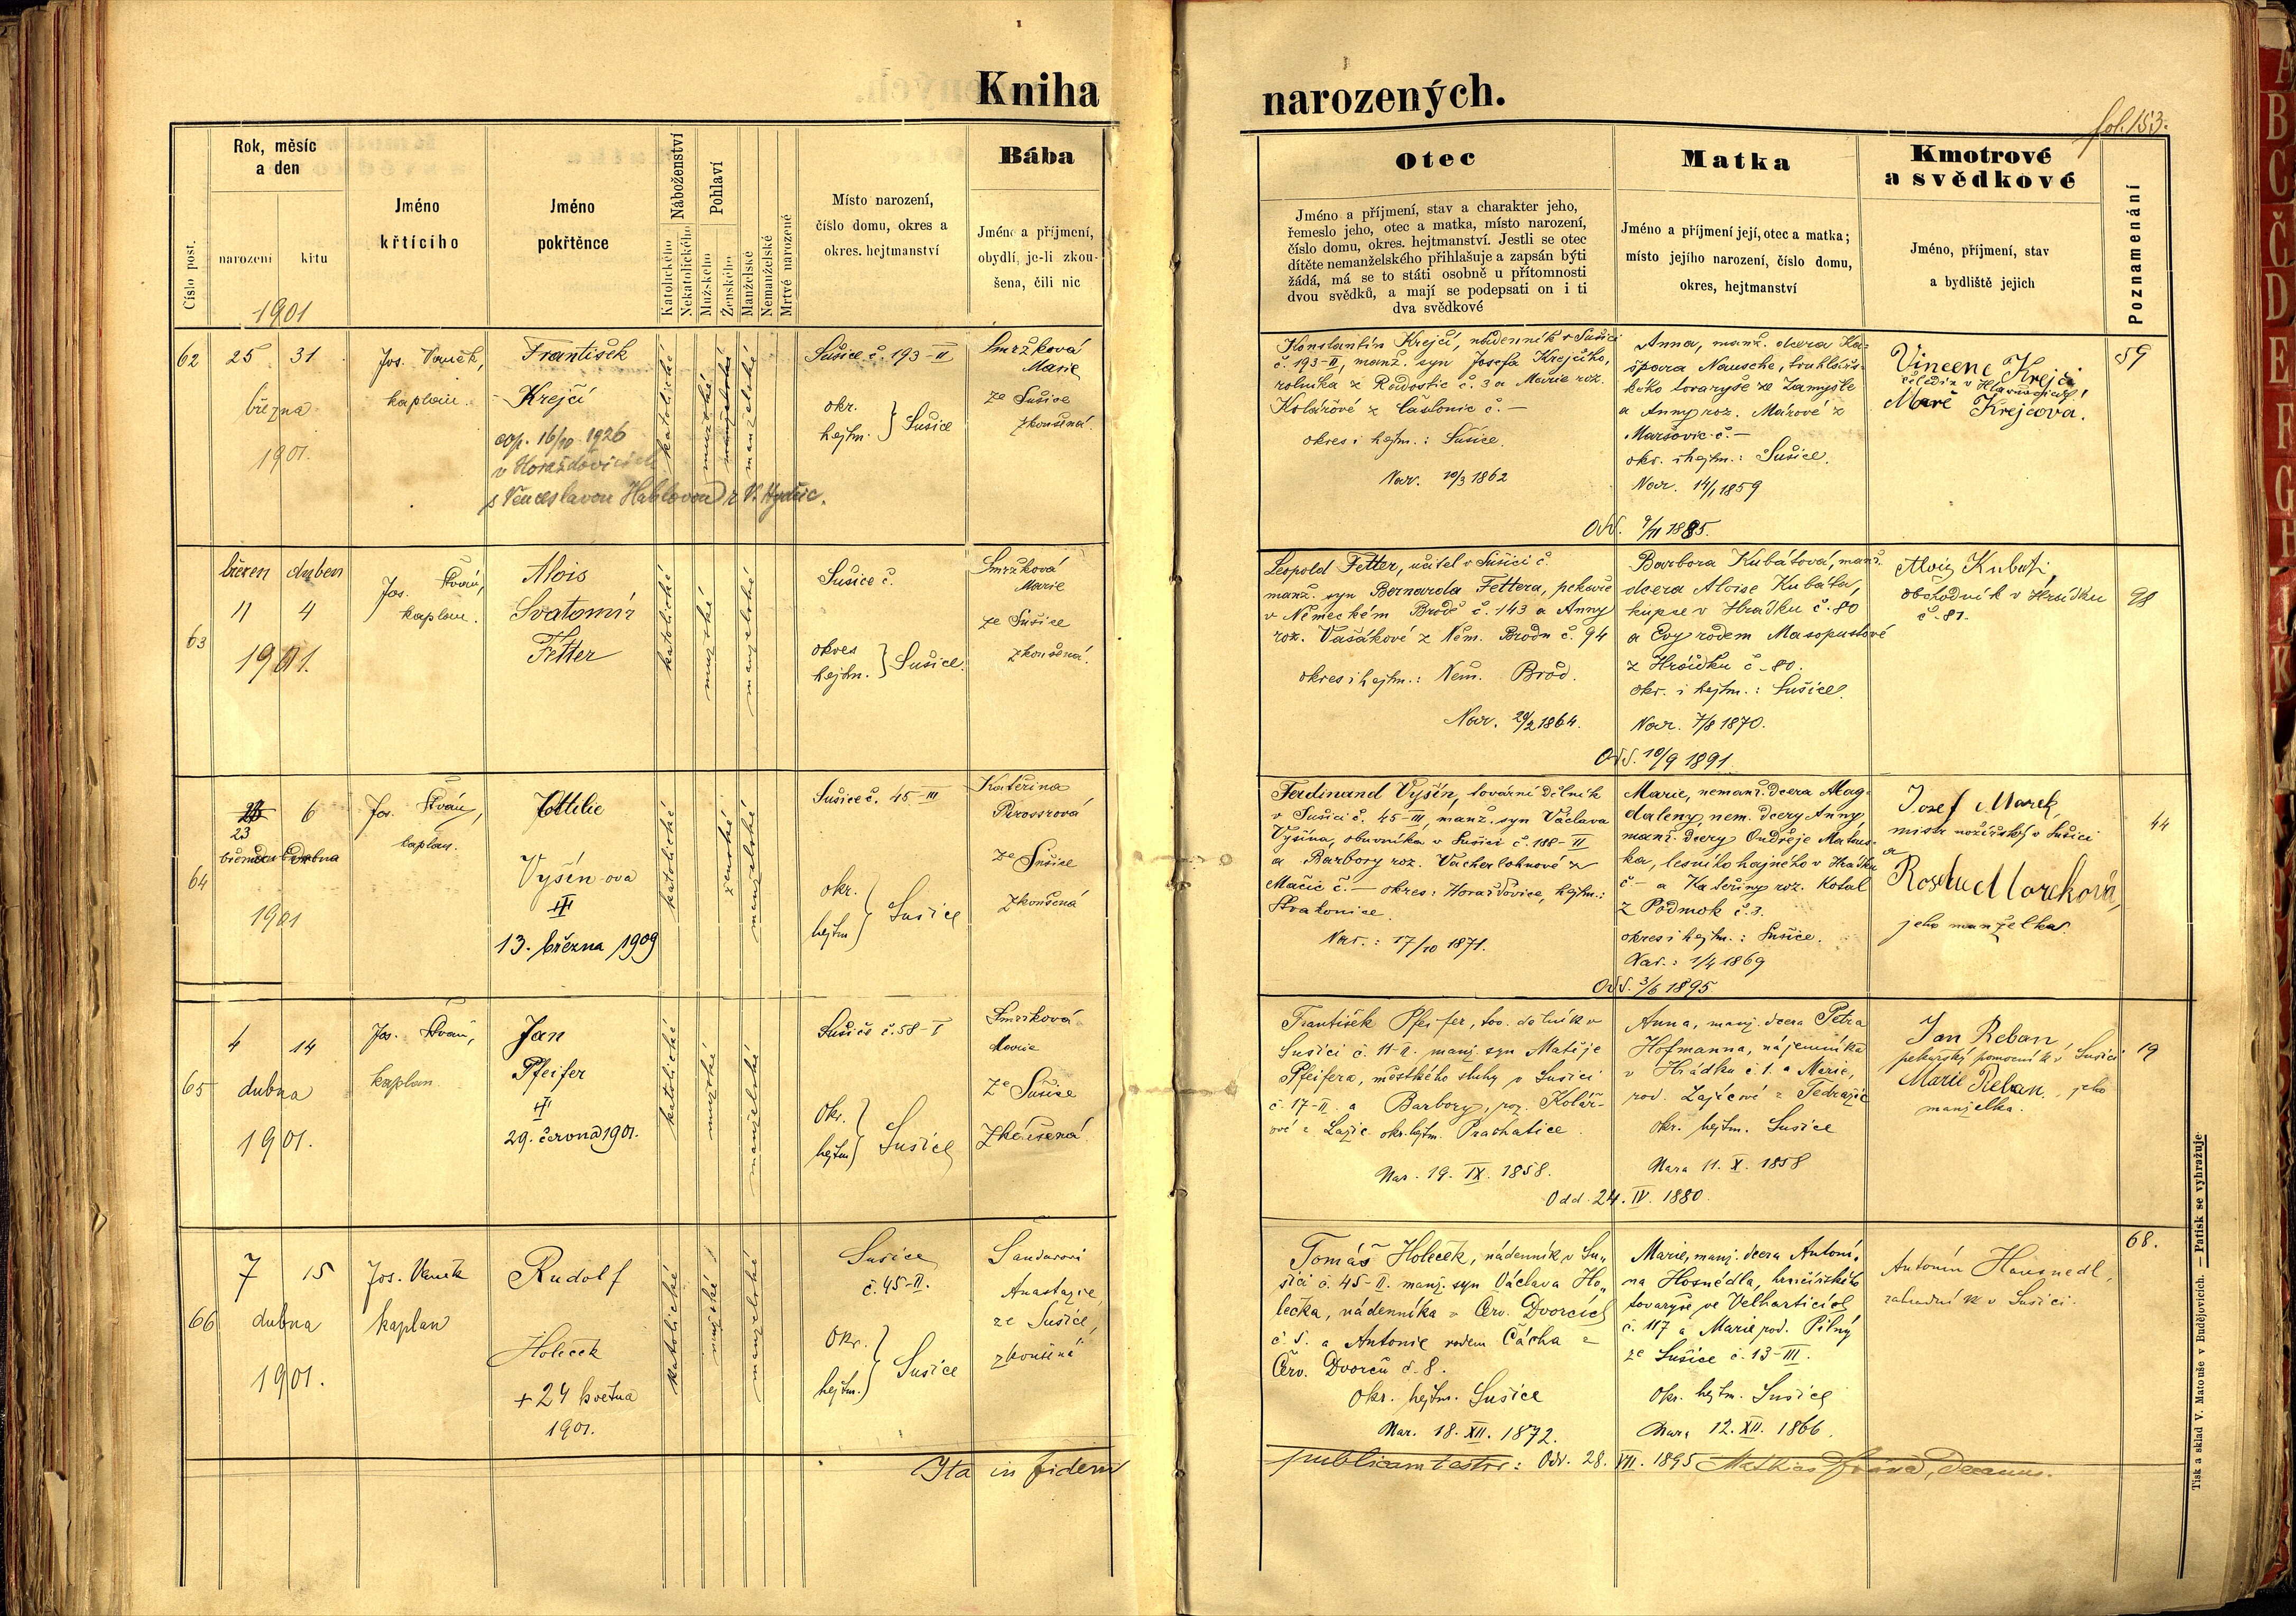 Kniha
narozených.
fol. 153.
Číslo post.
Rok, měsíc
a den
narození
křtu
1901
Jméno
křtícího
Jméno
pokřtěnce
Náboženství
Katolického
Nekatolického
Pohlaví
Mužského
Ženského
Manželské
Nemanželské
Mrtvě narozené
Místo narození,
číslo domu, okres a
okres. hejtmanství
Bába
Jméno a příjmení,
obydlí, je-li zkou-
šena, čili nic
Otec
Jméno a příjmení, stav a charakter jeho,
řemeslo jeho, otec a matka, místo narození,
číslo domu, okres. hejtmanství. Jestli se otec
dítěte nemanželského přihlašuje a zapsán býti
žádá, má se to státi osobně u přítomnosti
dvou svědků, a mají se podepsati on i ti
dva svědkové
Matka
Jméno a příjmení její, otec a matka;
místo jejího narození, číslo domu,
okres, hejtmanství
Kmotrové
a svědkové
Jméno, příjmení, stav
a bydliště jejich
Poznamenání
62
25 31
března
1901.
Jos. Vaněk,
kaplan.
František
Krejčí
cop. 16/10 1926
v Horažďovicích
s Venceslavou Hablovou z V. Hydčic.
katolické
mužské
manželské
Sušice č. 193-II
okr.
hejtm. } Sušice
Smržková
Marie
ze Sušice
zkoušená.
Konstantin Krejčí, nádenník v Sušici
č. 193-II, manž. syn Josefa Krejčího,
rolníka z Radostic č. 3 a Marie roz.
Kolářové z Častonic č. –
okres i hejtm.: Sušice.
Nar. 10/3 1862
Anna, manž. dcera Ka-
špara Nausche, truhlářs-
kého tovaryše ze Zamyšle
a Anny roz. Márové z
Maršovic č. –
okr. i hejtm.: Sušice.
Nar. 14/1 1859
Odd. 9/II 1885.
Vincenc Krejčí
Marie Krejčová.
59
63
březen duben
11 4
1901.
Jos. Štván,
kaplan.
Alois
Svatomír
Fetter
katolické
mužské
manželské
Sušice č.
okres
hejtm. } Sušice.
Smržková
Marie
ze Sušice
zkoušená.
Leopold Fetter, učitel v Sušici č.
manž. syn Bernarda Fettera, pekaře
v Německém Brodě č. 143 a Anny
roz. Vašákové z Něm. Brodu č. 94
okres i hejtm.: Něm. Brod.
Nar. 29/2 1864.
Barbora Kubátová, manž.
dcera Aloise Kubáta,
kupce v Hrádku č. 80
a Evy rodem Masopustové
z Hrádku č. 80.
okr. i hejtm.: Sušice.
Nar. 7/8 1870.
Odd. 10/9 1891.
Alois Kubát,
obchodník v Hrádku
č. 81.
98
64
23 6
března dubna
1901
Jos. Štván,
kaplan.
Ottilie
Vyšín-ova
13. března 1909
katolické
ženské
manželské
Sušice č. 45-III
okr.
hejtm } Sušice
Kateřina
ze Sušice
zkoušená
Ferdinand Vyšín, tovární dělník
v Sušici č. 45-III, manž. syn Václava
Vyšína, obuvníka v Sušici č. 188-II
a Barbory roz. Vacherlohnové z
Mačic č. – okres: Horažďovice, hejtm.:
Strakonice.
Nar.: 17/10 1871.
Marie, nemanž. dcera Mag-
daleny, nem. dcery Anny,
manž. dcery Ondřeje Matous-
ka, lesního hajného v Hrádku
č – a Kateřiny roz. Kotal
z Podmok č. 3.
okres i hejtm.: Sušice.
Nar.: 1/4 1869
Odd. 3/6 1895.
Josef Marek,
mistr nožířský v Sušici
a
Marková,
jeho manželka.
44
65
4 14
dubna
1901.
Jos. Štván,
kaplan
Jan
Pfeifer
29. června 1901.
katolické
mužské
manželské
Sušice č. 58-I
Okr.
hejtm } Sušice
Smržková
Marie
Ze Sušice
Zkoušená
František Pfeifer, tov. dělník v
Sušici č. 11-II. manž. syn Matěje
Pfeifera, městkého sluhy v Sušici
č. 17-II. a Barbory, roz. Kolář-
ové z Lažic okr. hejtm. Prachatice.
Nar. 19. IX. 1858.
Anna, manž. dcera Petra
Hofmanna, nájemníka
v Hrádku č. 1. a Marie,
rod. Zajícové z Tedražic
okr. hejtm. Sušice
Nara 11. X. 1858
Odd. 24. IV. 1880.
Jan Reban
pekařský pomocník v Sušici
Marie Reban, jeho
manželka.
19
66
7 15
dubna
1901.
Jos. Vaněk
kaplan
Rudolf
Holeček
+ 24 května
1901.
katolické
mužské
manželské
Sušice
č. 45-II.
Okr.
hejtm. } Sušice
Anastazie,
ze Sušice,
zkoušená
Tomáš Holeček, nádenník v Su-
šici č. 45-II. manž. syn Václava Ho-
lečka, nádenníka z Červ. Dvorců
č. 5. a Antonie rodem Čácha z
Červ. Dvorců č. 8.
Okr. hejtm. Sušice
Nar. 18. XII. 1872.
Marie, manž. dcera Antoní-
na Hosnédla, hrnčířského
tovaryše ve Velharticích
č. 117 a Marie rod. Pilný
ze Sušice č. 13-III.
Okr. hejtm. Sušice
Nara 12. XII. 1866.
Antonín Hausnedl,
zahradník v Sušici.
68.
Ita in fidem
publicam testor: Odd. 28. VII. 1895
Decanus.
Tisk a sklad V. Matouše v Budějovicích. — Patisk se vyhražuje.
A
B
C
Č
D
E
F
G